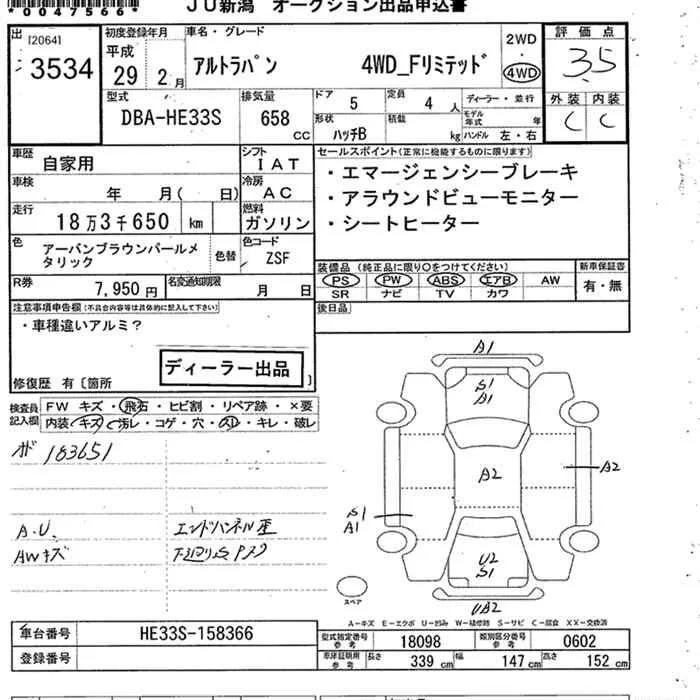 *0047566*
JU新潟 オークション出品申込書
出 [2064] 3534
初度登録年月 平成 29年 2月
車名・グレード
アルトラパン 4WD_Fリミテッド
2WD
4WD
評価点
3.5
型式 DBA-HE33S
排気量 658 CC
ドア 5
定員 4人
ディーラー・並行
モデル年式 年
外装 内装
C C
形状 ハッチB
積載 kg
ハンドル 左・右
車歴 自家用
シフト IAT
セールスポイント(正常に機能するものに限ります)
・エマージェンシーブレーキ
・アラウンドビューモニター
・シートヒーター
車検 年 月( 日)
冷房 AC
走行 18万3千650 km
燃料 ガソリン
色 アーバンブラウンパールメタリック
色替
色コード ZSF
装備品(純正品に限り○をつけてください)
新車保証書
PS PW ABS エアB AW
有・無
SR ナビ TV カワ
R券 7,950円
名変通知期限 月 日
後日品
注意事項申告欄(不具合内容等は具体的に記入して下さい)
・車種違いアルミ?
ディーラー出品
修復歴 有〔箇所 〕
検査員記入欄
FW キズ・飛石・ヒビ割・リペア跡・×要
内装 キズ・汚レ・コゲ・穴・スレ・キレ・破レ
183651
A.U.
AWキズ
A1
S1
A1
A2
A2
S1
A1
U2
S1
UB2
スペア
A-キズ E-エクボ U-凹み W-補修跡 S-サビ C-腐食 XX-交換済
車台番号 HE33S-158366
型式指定番号 参考 18098
類別区分番号 参考 0602
登録番号
車庫証明用 参考
長さ 339 cm
幅 147 cm
高さ 152 cm